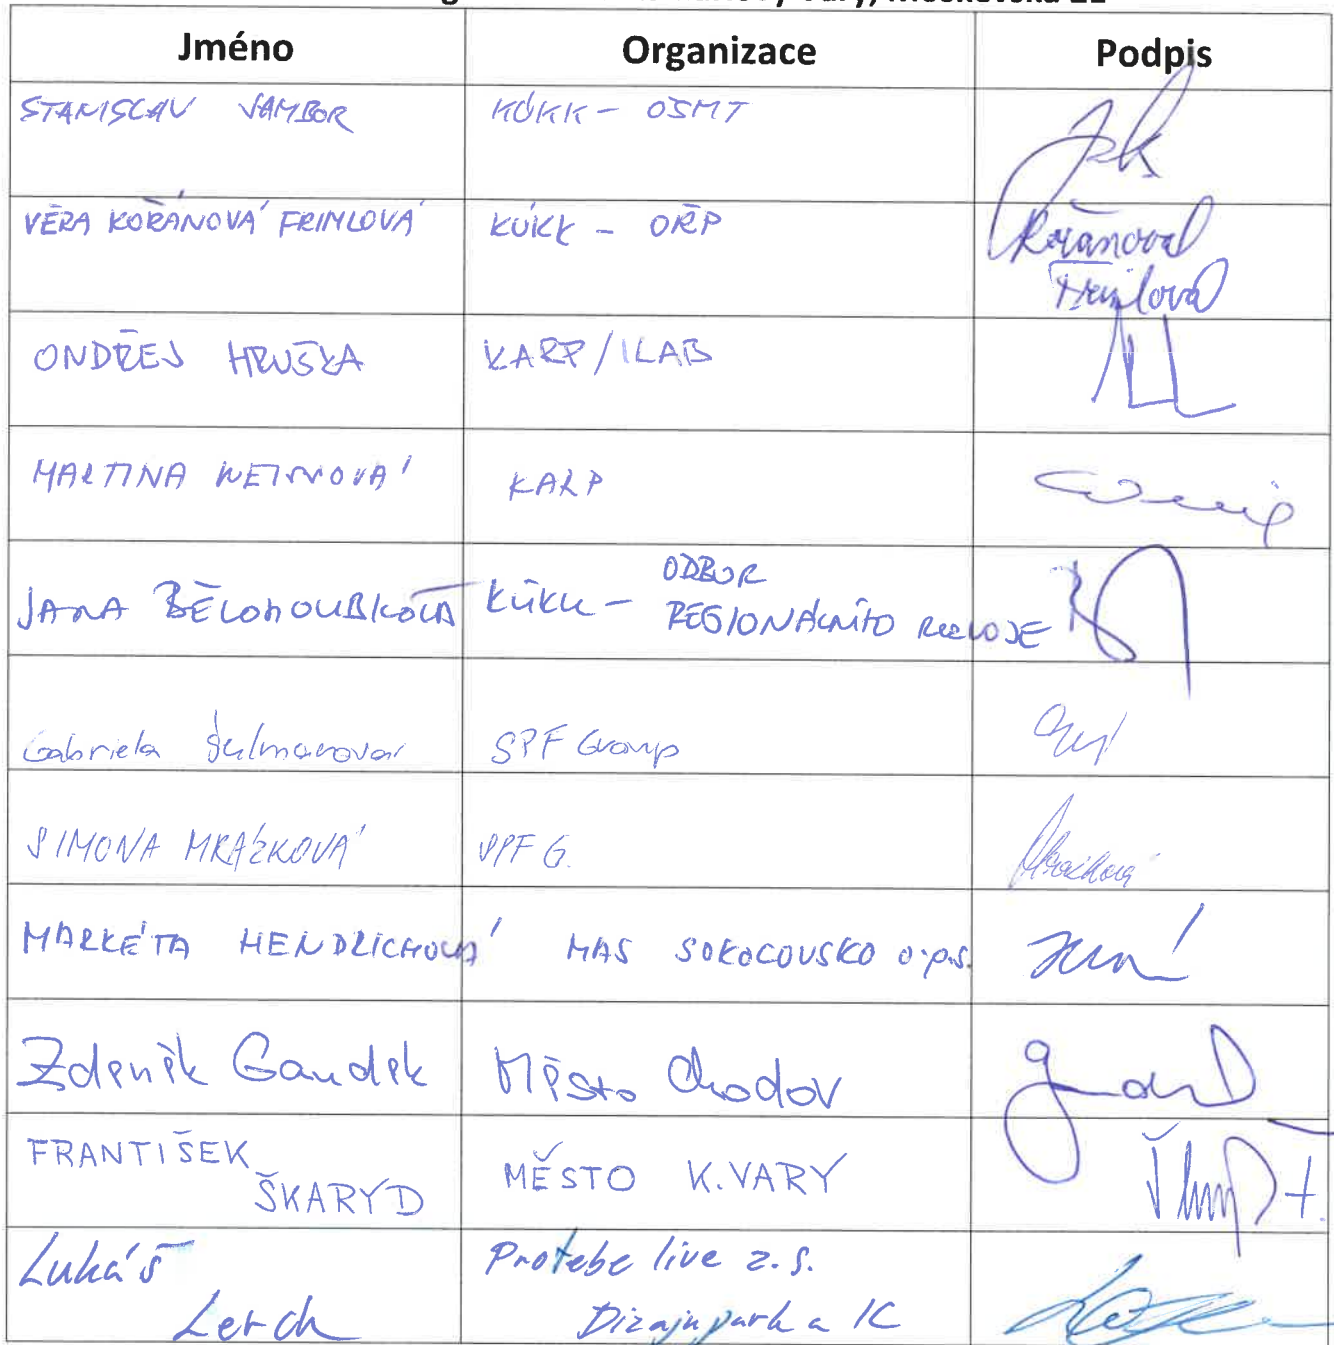 Karlovy Vary, Moskovská 21
Jméno Organizace Podpis
STANISLAV JAMBOR KÚKK - OŠMT
VĚRA KOŘÁNOVÁ FRIMLOVÁ KÚKK - OŘP Kořánová
Frimlová
ONDŘEJ HRUŠKA KARP/ILAB
MARTINA KARP
JANA BĚLOHOUBKOVÁ KÚKK - ODBOR
REGIONÁLNÍHO ROZVOJE
Gabriela SPF Group
SIMONA MRÁZKOVÁ SPF G. Mrázková
MARKÉTA HENDRICHOVÁ MAS SOKOLOVSKO o.p.s.
Zdeněk Gaudek Město Chodov
FRANTIŠEK
ŠKARYD MĚSTO K.VARY
Lukáš Protebe live z.s.
Lerch Dizajnpark a IC